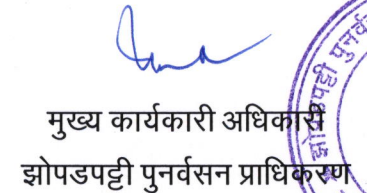 मुख्य कार्यकारी अधिकारी
झोपडपट्टी पुनर्वसन प्राधिकरण
झोपडपट्टी